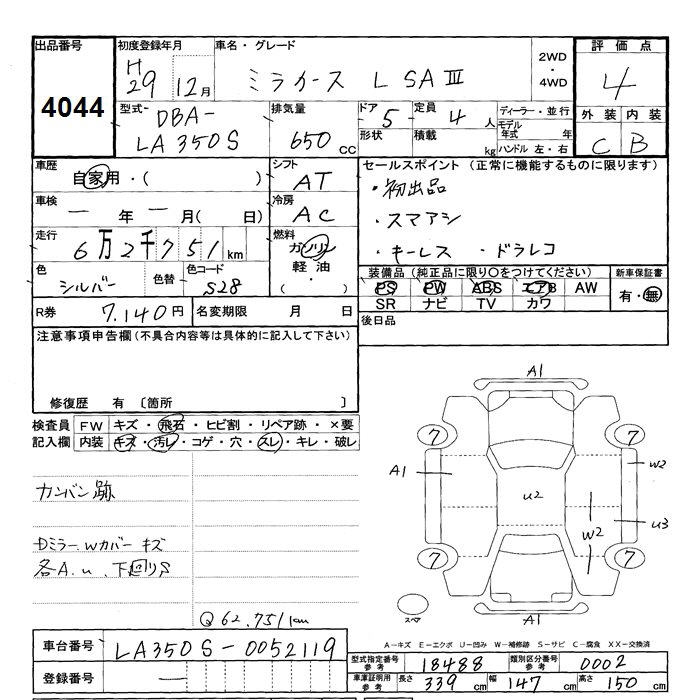 出品番号
4044
初度登録年月
H29 12月
車名・グレード
ミライース L SAⅢ
2WD・4WD
評価点
4
型式
DBA-
LA350S
排気量
650 cc
ドア 5
形状
定員 4 人
積載 kg
ディーラー・並行
モデル年式 年
ハンドル 左・右
外装 内装
C B
車歴
自家用・( )
シフト
AT
セールスポイント (正常に機能するものに限ります)
・初出品
・スマアシ
・キーレス ・ドラレコ
車検
一 年 一 月( 日)
冷房
AC
走行
6万2千751km
燃料
ガソリン
軽油・
( )
色
シルバー
色替
色コード
S28
装備品(純正品に限り○をつけてください)
PS PW ABS エアB AW
SR ナビ TV カワ
新車保証書
有・無
R券
7,140円
名変期限 月 日
後日品
注意事項申告欄(不具合内容等は具体的に記入して下さい)
修復歴 有 〔箇所 〕
検査員記入欄
FW キズ・飛石・ヒビ割・リペア跡・×要
内装 キズ・汚レ・コゲ・穴・スレ・キレ・破レ
カンバン跡
Dミラー、Wカバー キズ
各A.u、下回りS
Q 62,751km
A1
7 7
A1 U2 W2
W2 U3
7 7
スペア
A1
A-キズ E-エクボ U-凹み W-補修跡 S-サビ C-腐食 XX-交換済
車台番号
LA350S-0052119
登録番号
一
型式指定番号
参考
18488
類別区分番号
参考
0002
車庫証明用
参考
長さ 339 cm 幅 147 cm 高さ 150 cm